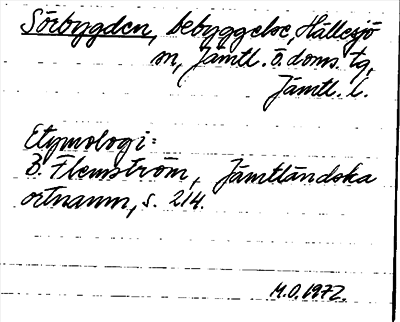 Sörbygden, bebyggelse, Hällesjö
sn, Jämtl. ö. doms. tg,
Jämtl. l.
Etymologi:
B. Flemström, Jämtländska
ortnamn, s. 214.
M.O. 1972.